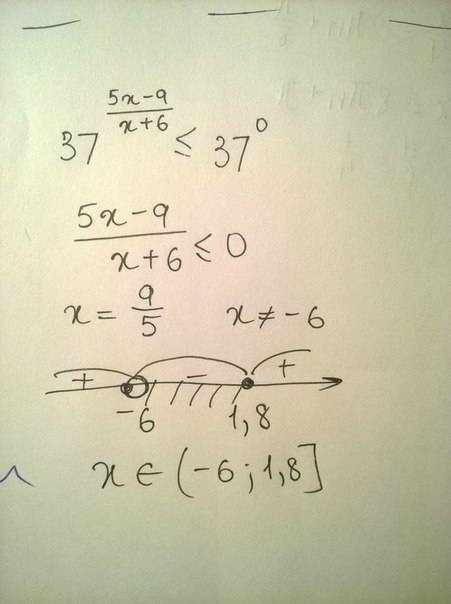 37^((5x-9)/(x+6)) ≤ 37^0
(5x-9)/(x+6) ≤ 0
x = 9/5 x ≠ -6
+ - +
-6 1,8
x ∈ (-6; 1,8]